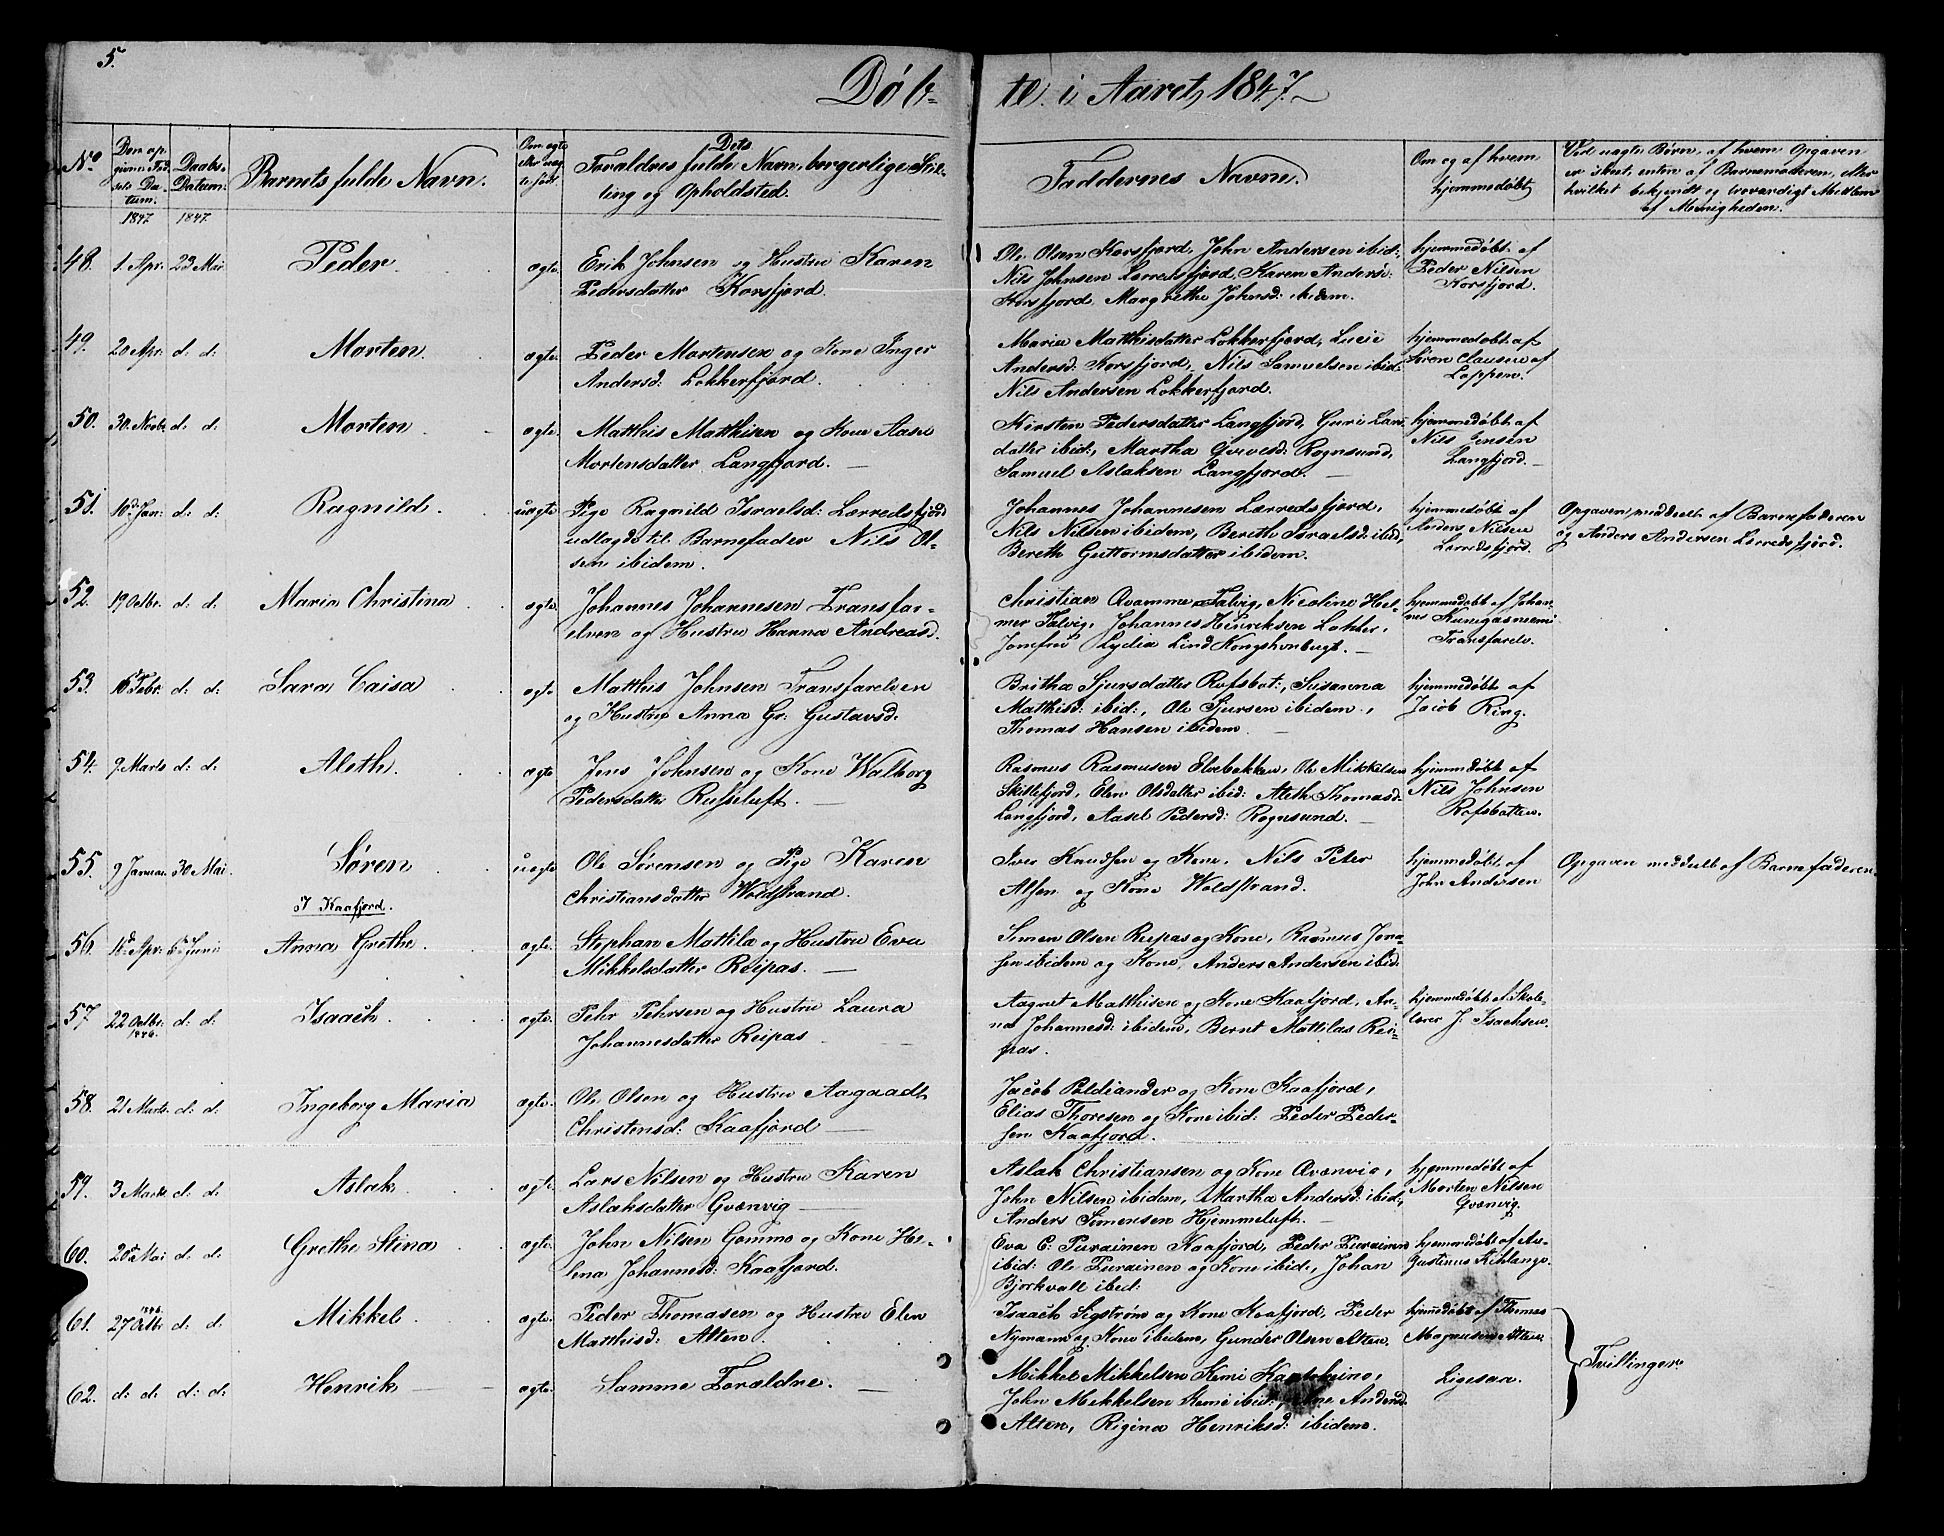 5.
Døb- te i Aaret 1847.
No
Den opgivne Fødsels Datum.
Daabs-Datum.
Barnets fulde Navn.
Om ægte eller uægte født
Dets Forældres fulde Navn, borgerlige Stilling og Opholdsted.
Faddernes Navne.
Om og af hvem hjemmedøbt
Ved uægte Børn, af hvem Opgaven er skeet, enten af Barnemoderen, eller hvilket bekjendt og troværdigt Medlem af Menigheden.
1847 1847.
48. 1. Apr: 23 Mai Peder. ægte. Erik Johnsen og Hustru Karen
Pedersdatter Korsfjord.
Ole Olsen Korsfjord, John Andersen ibid:
Nils Johnsen Lerredsfjord, Karen Anders:
Korsfjord, Margrethe Johnsd: ibidem.
hjemmedøbt af
Peder Nilsen
Korsfjord.
49. 20 Apr: d: d: Morten. ægte. Peder Mortensen og Kone Inger
Andersd: Lokkerfjord.
Maria Matthisdatter Lokkerfjord, Lucie
Andersd: Korsfjord, Nils Samuelsen ibid:
Nils Andersen Lokkerfjord.
hjemmedøbt af
Søren Clausen af
Loppen.
50. 30. Novbr. d: d: Morten ægte. Matthis Matthisen og Kone Aase
Mortensdatter Langfjord.
Kirsten Pedersdatter Langfjord, Guri Lars
datter ibid:, Martha Qvivesd: Rognsund,
Samuel Aslaksen Langfjord.
hjemmedøbt af
Nils Jensen
Langfjord.
51. 16d: Jan: d: d: Ragnild. uægte Pige Ragnild Israelsd: Lærredsfjord
udlagde til Barnefader Nils Ol-
sen ibidem.
Johannes Johannesen Lærredsfjord,
Nils Nilsen ibidem, Bereth Israelsd: ibid,
Bereth Guttormsdatter ibidem.
hjemmedøbt af
Anders Nilsen
Lerredsfjord.
Opgaven meddeelt af Barnefaderen
og Anders Andersen Lerredsfjord.
52. 19 Octbr. d: d: Maria Christina ægte. Johannes Johannesen Transfar-
elven og Hustru Hanna Andreasd.
Christian Qvamme Talvig, Nicoline Hel-
mer Talvig, Johannes Henriksen Lokker,
Jomfru Lydia Lind Kongshavnbugt.
hjemmedøbt af Johan-
nes Kunigasniemi
Transfarelv.
53. 16 Febr. d: d: Sara Caisa ægte. Matthis Johnsen Transfarelven
og Hustru Anna Gr: Gustavsd.
Britha Sjursdatter Rafsbot:, Susanna
Matthisd: ibid:, Ole Sjursen ibidem,
Thomas Hansen ibidem
hjemmedøbt af
Jacob Ring.
54. 9. Marts d: d: Aleth. ægte. Jens Johnsen og Kone Walborg
Pedersdatter Russeluft.
Rasmus Rasmusen Elvebakken, Ole Mikkelsen
Skillefjord, Elen Olsdatter ibid: Aleth Thomasd:
Langfjord, Aasel Pedersd: Rognsund.
hjemmedøbt af
Nils Johnsen
Rafsbotten.
55. 9 Januar 30 Mai. Søren uægte Ole Sørensen og Pige Karen
Christiansdatter Woldstrand.
Iver Knudsen og Kone, Nils Peter
Alsen og Kone Woldstrand.
hjemmedøbt af
John Andersen
Opgaven meddeelt af Barnefaderen.
I Kaafjord.
56. 16d Apr: 6te Juni Anna Grethe. ægte. Stephan Mattila og Hustru Eva
Mikkelsdatter Reipas.
Simen Olsen Reipas og Kone, Rasmus Jora-
sen ibidem og Kone, Anders Andersen ibid.
57 22 Octbr. 1846. d: d: Isaach ægte. Pehr Pehrsen og Hustru Laura
Johannesdatter Reipas
Aagnet Matthisen og Kone Kaafjord, An-
na Johannesd: ibidem, Bernt Mattilas Rei-
pas.
hjemmedøbt af Skole-
lærer J. Isachsen.
58. 21 Marts. d: d: Ingeborg Maria ægte. Ole Olsen og Hustru Aagaadt
Christensd: Kaafjord
Jacob Poldiander og Kone Kaafjord,
Elias Thoresen og Kone ibid: Peder Peder-
sen Kaafjord.
59. 3 Marts d: d: Aslak ægte. Lars Nilsen og Hustru Karen
Aslaksdatter Qvænvig
Aslak Christiansen og Kone Qvænvig,
John Nilsen ibidem, Martha Andersd: ibid,
Anders Simensen Hjemmeluft.
hjemmedøbt af
Morten Nilsen
Qvænvig.
60. 20de Mai d: d: Grethe Stina ægte. John Nilsen Gammo og Kone He-
lena Johannesd: Kaafjord.
Eva C. Purainen Kaafjord, Peder Purainen
ibid: Ole Purainen og Kone ibid:, Johan
Bjørkvall ibid:
hjemmedøbt af Au-
gustinus Kihlango.
61. 1846. 27 Octbr d: d: Mikkel. ægte. Peder Thomasen og Hustru Elen
Matthisd: Alten
Isaach Sigstrøm og Kone Kaafjord, Peder
Nymann og Kone ibidem, Gunder Olsen Alten.
hjemmedøbt af Thomas
Magnusen Alten.
Tvillinger.
62. d: d: d: d: Henrik ægte. Samme Forældre.
Mikkel Mikkelsen Kemi Kautokeino,
John Mikkelsen Kemi ibid: Andersd.
Alten, Rigina Henriksd: ibidem.
Ligesaa.